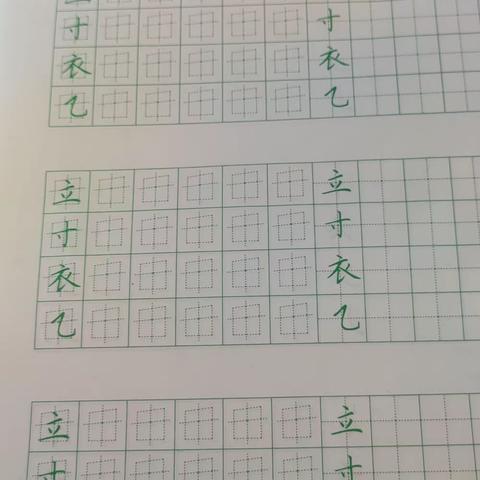 立 立
寸 寸
衣 衣
乙 乙
立 立
寸 寸
衣 衣
乙 乙
立 立
寸 寸